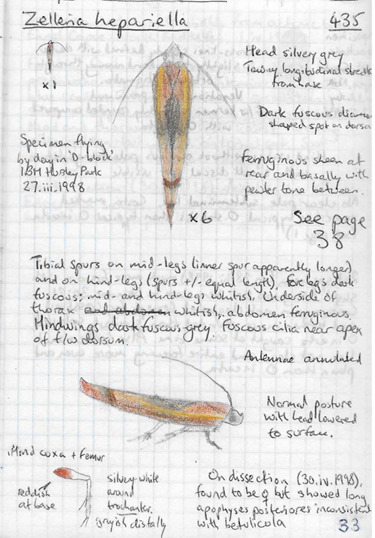 Zelleria hepariella 435
Head silvery grey
Tawny longitudinal streak
from base
x1
Dark fuscous
shaped spot on dorsum
Specimen flying
by day in 'D-block'
IBM Hursley Park
27.iii.1998
ferruginous sheen at
rear and basally with
pewter tone between.
x6
See page
38
Tibial spurs on mid-legs (inner spur apparently longer)
and on hind-legs (spurs +/- equal length), fore legs dark
fuscous; mid- and hind-legs whitish. Underside of
thorax and abdomen whitish, abdomen ferruginous.
Hindwings dark fuscous grey. Fuscous cilia near apex
of f/w dorsum.
Antennae annulated
Normal posture
with head lowered
to surface.
Hind coxa + Femur
reddish
at base
silvery white
around
trochanter.
greyish distally
On dissection (30.iv.1998),
found to be ♀ but showed long
apophyses posteriores inconsistent
with betulicola
33